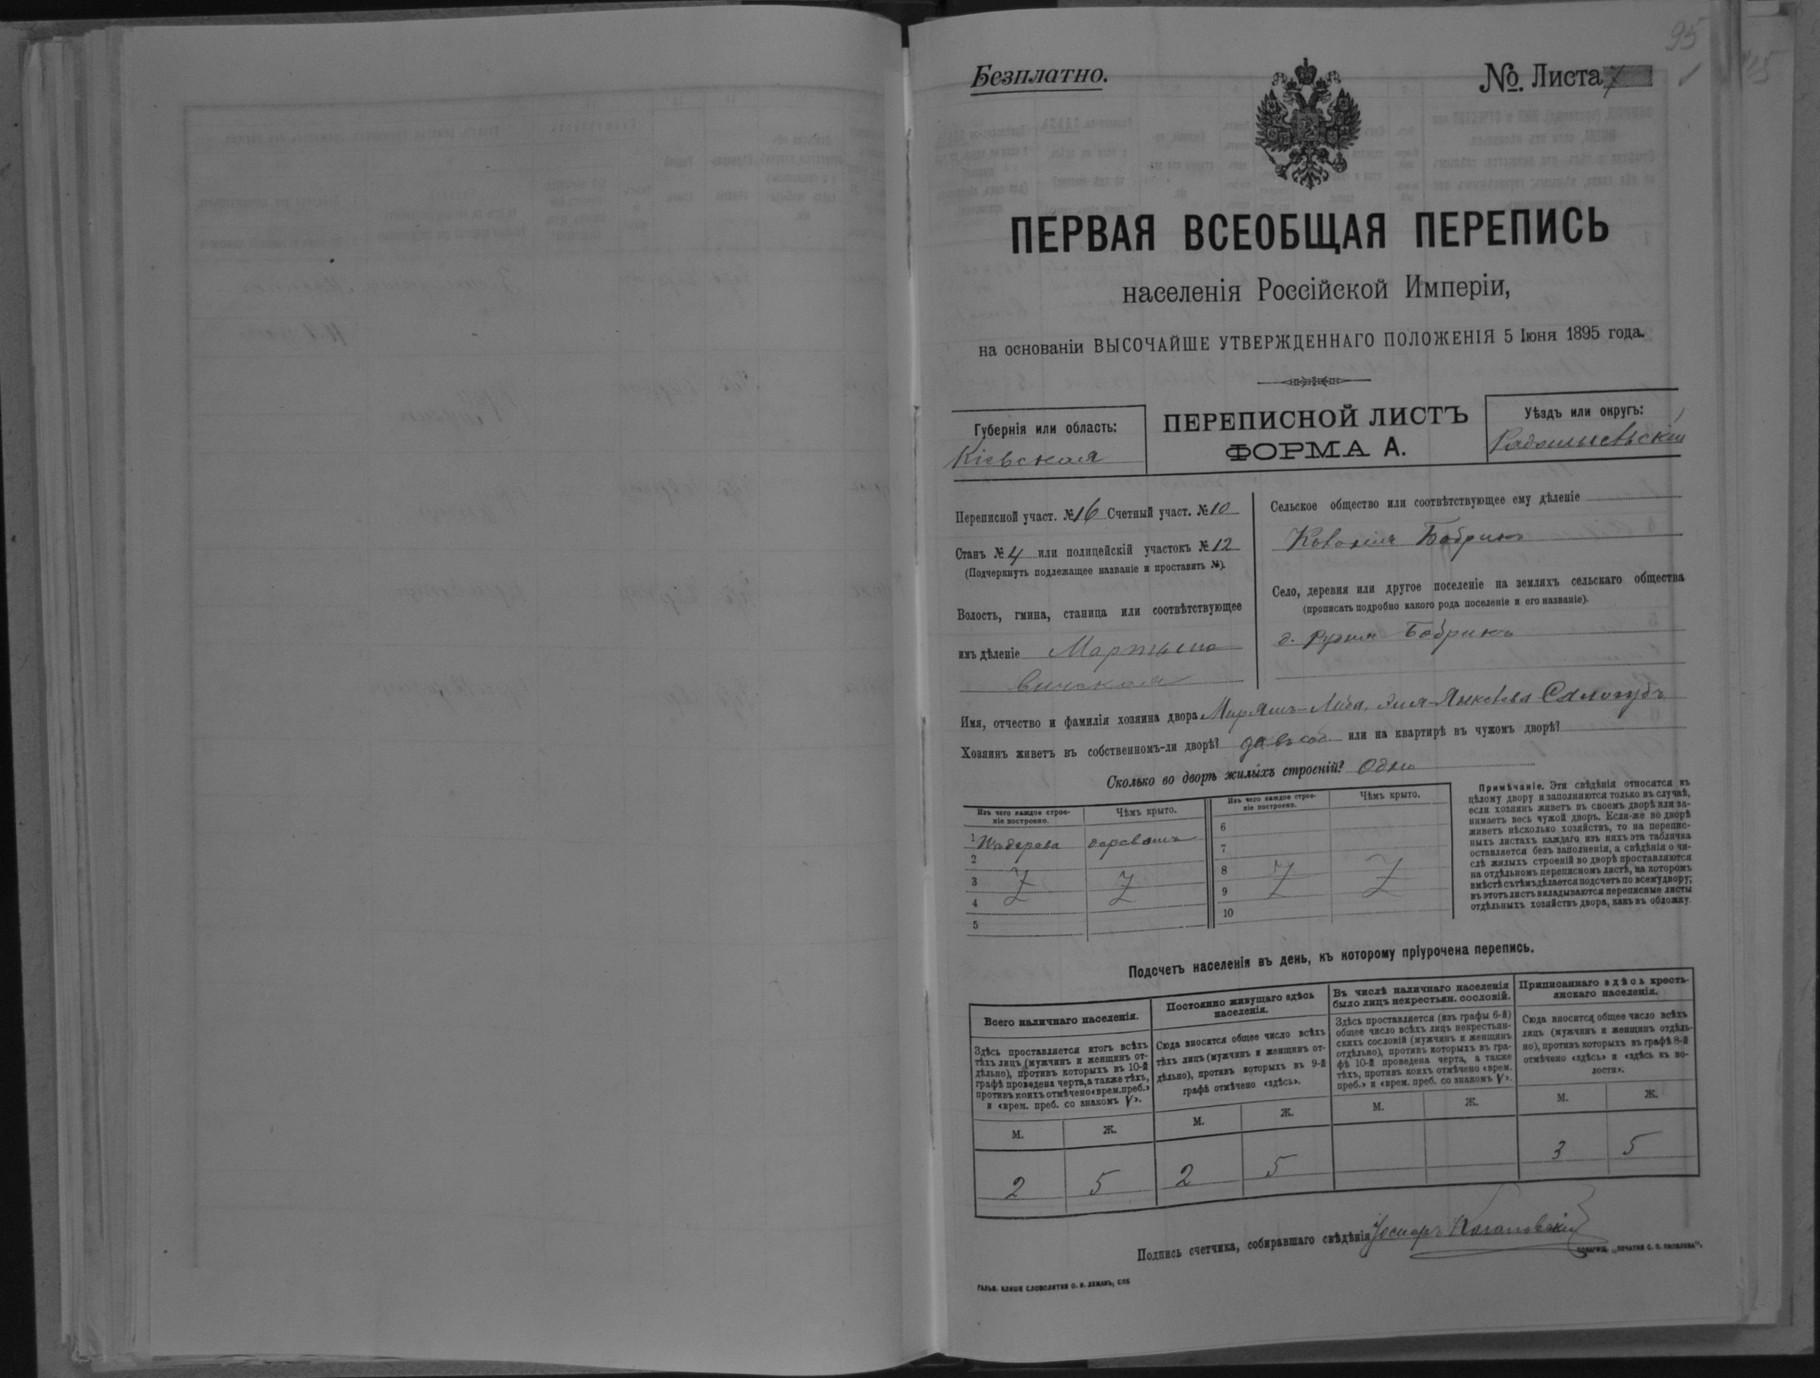 95
Безплатно.
№ Листа 7
ПЕРВАЯ ВСЕОБЩАЯ ПЕРЕПИСЬ
населенія Россійской Имперіи,
на основаніи ВЫСОЧАЙШЕ УТВЕРЖДЕННАГО ПОЛОЖЕНІЯ 5 Іюня 1895 года.
Губернія или область:
Кіевская
ПЕРЕПИСНОЙ ЛИСТЪ
ФОРМА А.
Уѣздъ или округъ:
Радомысльскій
Переписной участ. № 16 Счетный участ. № 10
Станъ № 4 или полицейскій участокъ № 12
(Подчеркнуть подлежащее названіе и проставить №).
Волость, гмина, станица или соотвѣтствующее
имъ дѣленіе Мартыно
вичская
Сельское общество или соотвѣтствующее ему дѣленіе
Колонія Бобрикъ
Село, деревня или другое поселеніе на земляхъ сельскаго общества
(прописать подробно какого рода поселеніе и его названіе).
д. Рудня Бобрикъ
Имя, отчество и фамилія хозяина двора
Хозяинъ живетъ въ собственномъ-ли дворѣ? да въ соб. или на квартирѣ въ чужомъ дворѣ?
Сколько во дворѣ жилыхъ строеній? Одно
Изъ чего каждое строе-
ніе построено.
Чѣмъ крыто.
Изъ чего каждое строе-
ніе построено.
Чѣмъ крыто.
1 Издерева деревомъ
2
3
4
5
6
7
8
9
10
Примѣчаніе. Эти свѣдѣнія относятся къ
цѣлому двору и заполняются только въ случаѣ,
если хозяинъ живетъ въ своемъ дворѣ или за-
нимаетъ весь чужой дворъ. Если-же во дворѣ
живетъ нѣсколько хозяйствъ, то на перепис-
ныхъ листахъ каждаго изъ нихъ эта табличка
оставляется безъ заполненія, а свѣдѣнія о чи-
слѣ жилыхъ строеній во дворѣ проставляются
на отдѣльномъ переписномъ листѣ, на которомъ
вмѣстѣ съ тѣмъ дѣлается подсчетъ по всему двору;
въ этотъ листъ вкладываются переписные листы
отдѣльныхъ хозяйствъ двора, какъ въ обложку.
Подсчетъ населенія въ день, къ которому пріурочена перепись.
Всего наличнаго населенія.
Здѣсь проставляется итогъ всѣхъ
тѣхъ лицъ (мужчинъ и женщинъ от-
дѣльно), противъ которыхъ въ 10-й
графѣ проведена черта, а также тѣхъ,
противъ коихъ отмѣчено «врем. преб.»
и «врем. преб. со знакомъ V».
М. Ж.
2 5
Постоянно живущаго здѣсь
населенія.
Сюда вносится общее число всѣхъ
тѣхъ лицъ (мужчинъ и женщинъ от-
дѣльно), противъ которыхъ въ 9-й
графѣ отмѣчено «здѣсь».
М. Ж.
2 5
Въ числѣ наличнаго населенія
было лицъ некрестьян. сословій.
Здѣсь проставляется (изъ графы 6-й)
общее число всѣхъ лицъ некрестьян-
скихъ сословій (мужчинъ и женщинъ
отдѣльно), противъ которыхъ въ гра-
фѣ 10-й проведена черта, а также
тѣхъ, противъ коихъ отмѣчено «врем.
преб.» и «врем. преб. со знакомъ V».
М. Ж.
Приписаннаго здѣсь кресть-
янскаго населенія.
Сюда вносится общее число всѣхъ
лицъ (мужчинъ и женщинъ отдѣль-
но), противъ которыхъ въ графѣ 8-й
отмѣчено «здѣсь» и «здѣсь въ во-
лости».
М. Ж.
3 5
Подпись счетчика, собиравшаго свѣдѣнія
ГАЛЬВ. КЛИШЕ СЛОВОЛИТНИ О. И. ЛЕМАНЪ, СПБ